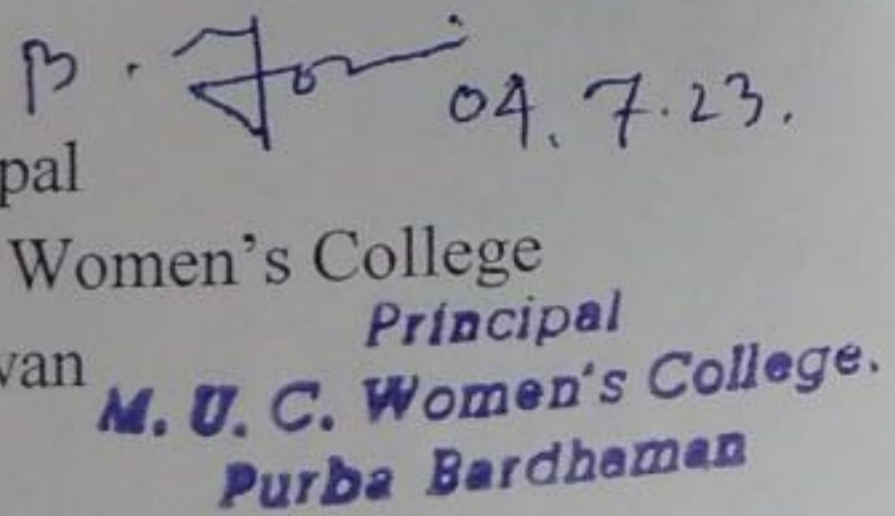 B. 04.7.23.
pal
Women's College
Principal
van
M. U. C. Women's College.
Purba Bardhaman